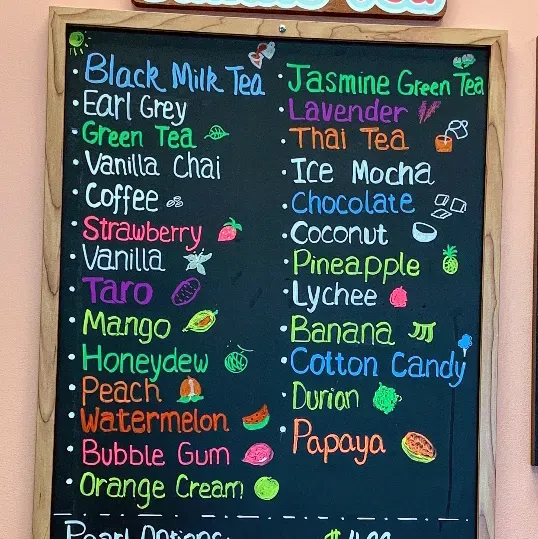 • Black Milk Tea
• Earl Grey
• Green Tea
• Vanilla Chai
• Coffee
• Strawberry
• Vanilla
• Taro
• Mango
• Honeydew
• Peach
• Watermelon
• Bubble Gum
• Orange Cream
• Jasmine Green Tea
• Lavender
• Thai Tea
• Ice Mocha
• Chocolate
• Coconut
• Pineapple
• Lychee
• Banana
• Cotton Candy
• Durion
• Papaya
Pearl Options